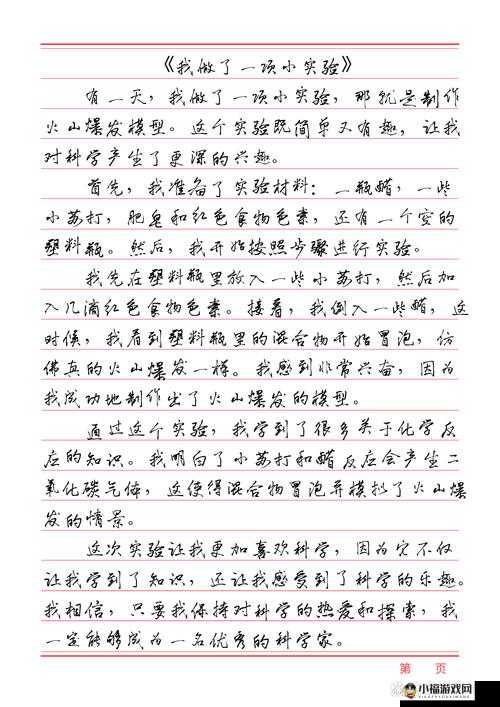 《我做了一项小实验》
有一天，我做了一项小实验，那就是制作
火山爆发模型。这个实验既简单又有趣，让我
对科学产生了更深的兴趣。
首先，我准备了实验材料：一瓶醋，一些
小苏打，肥皂和红色食物色素，还有一个空的
塑料瓶。然后，我开始按照步骤进行实验。
我先在塑料瓶里放入一些小苏打，然后加
入几滴红色食物色素。接着，我倒入一些醋，这
时候，我看到塑料瓶里的混合物开始冒泡，仿
佛真的火山爆发一样。我感到非常兴奋，因为
我成功地制作出了火山爆发的模型。
通过这个实验，我学到了很多关于化学反
应的知识。我明白了小苏打和醋反应会产生二
氧化碳气体，这使得混合物冒泡并模拟了火山爆
发的情景。
这次实验让我更加喜欢科学，因为它不仅
让我学到了知识，还让我感受到了科学的乐趣。
我相信，只要我保持对科学的热爱和探索，我
一定能够成为一名优秀的科学家。
第 页
小福游戏网